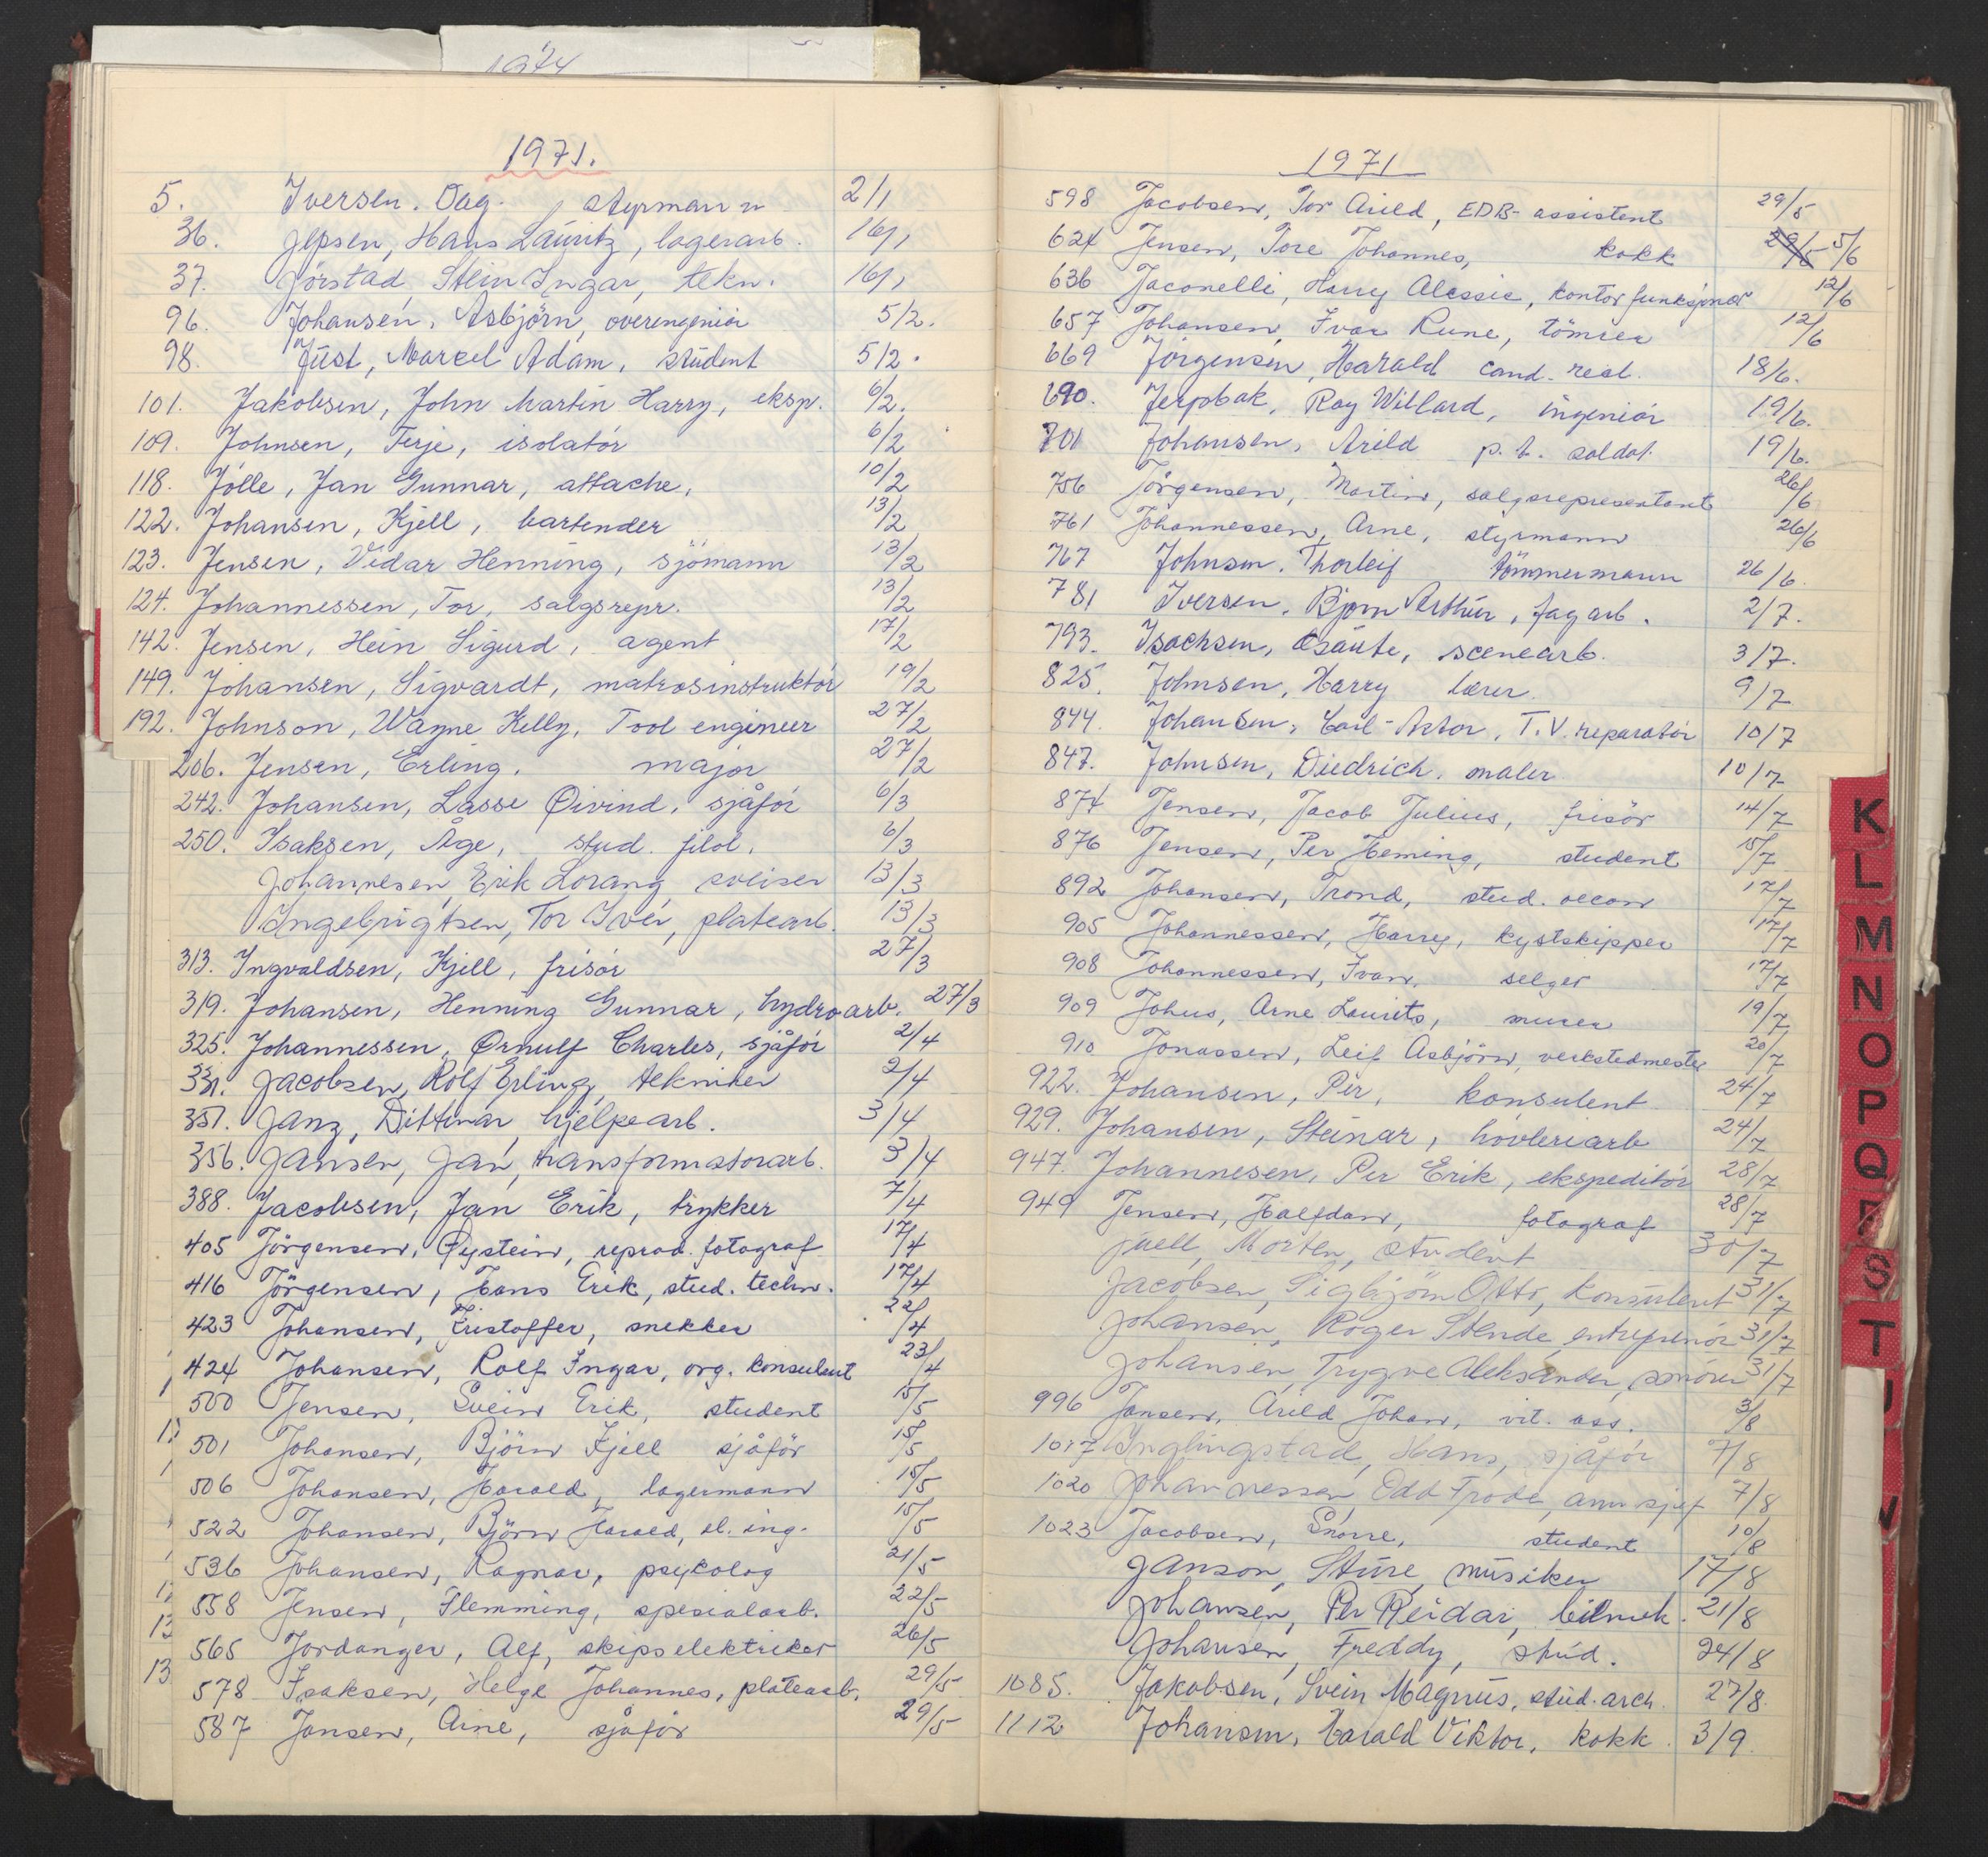 1974
1971.
5. Iversen. Dag. styrmann 2/1
36. Jepsen, Hans Lauritz, lagerarb. 16/1
37. Jørstad, Stein Ingar, tekn. 16/1
96. Johansen, Asbjörn, overingeniør 5/2.
98. Just, Marcel Adam, student 5/2.
101. Jakobsen, John Martin Harry, eksp. 6/2.
109. Johnsen, Terje, isolatör 6/2
118. Jölle, Jan Gunnar, attache, 10/2
122. Johansen, Kjell, bartender 13/2
123. Jensen, Vidar Henning, sjömann 13/2
124. Johannessen, Tor, salgsrepr. 13/2
142. Jensen, Hein Sigurd, agent 17/2
149. Johansen, Sigvardt, matrosinstruktör 19/2
192. Johnson, Wayne Kelly, Tool engineer 27/2
206. Jensen, Erling, major 27/2
242. Johansen, Lasse Øivind, sjåför 6/3
250. Isaksen, Åge, stud. filol. 6/3
Johannesen, Erik Lorang sveiser 13/3
Ingebrigtsen, Tor Iver, platearb. 13/3
313. Ingvaldsen, Kjell, frisör 27/3
319. Johansen, Henning Gunnar, hydroarb. 27/3
325. Johannessen, Ørnulf Charles, sjåför 2/4
331. Jacobsen, Rolf Erling, tekniker 2/4
351. Janz, Dittmar, hjelpearb. 3/4
356. Jansen, Jan, transformatorarb. 3/4
388. Jacobsen, Jan Erik, trykker 7/4
405 Jörgensen, Øystein, reprod. fotograf 17/4
416 Jörgensen, Hans Erik, stud. techn. 17/4
423 Johansen, Kristoffer, snekker 22/4
424 Johansen, Rolf Ingar, org. konsulent 23/4
500 Jensen, Svein Erik, student 15/5
501 Johansen, Björn Kjell sjåför 15/5
506 Johansen, Harald, lagermann 15/5
522 Johansen, Björn Harald, el. ing. 15/5
536 Johansen, Ragnar, psykolog 21/5
558 Jensen, Flemming, spesialarb. 22/5
565 Jordanger, Alf, skipselektriker 26/5
578 Isaksen, Helge Johannes, platearb. 29/5
587 Jansen, Arne, sjåför 29/5
1971
598 Jacobsen, Tor Arild, EDB-assistent 29/5
624 Jensen, Tore Johannes, kokk 29/5 5/6
636 Jaconelli, Harry Alessic, kontorfunksjonær 12/6
657 Johansen, Ivar Rune, tömrer 12/6
669 Jörgensen, Harald cand. real. 18/6.
690. Jerpbak, Ray Willard, ingeniör 19/6.
701 Johansen, Arild p.t. soldat 19/6.
756 Jörgensen, Martin, salgsrepresentant 26/6
761 Johannessen, Arne, styrmann 26/6
767 Johnsen, Thorleif tömmermann 26/6.
781 Iversen, Bjørn Arthur, fagarb. 2/7.
793. Isachsen, Gaute, scenearb. 3/7.
825. Johnsen, Harry lærer. 9/7
844. Johansen, Carl-Astor, T.V. reparatör 10/7
847. Johnsen, Diedrich, maler 10/7
874 Jensen, Jacob Julius, frisör 14/7
876 Jensen, Per Heming, student 15/7
892 Johansen, Trond, stud. oecon 17/7
905 Johannessen, Harry, kystskipper 17/7
908 Johannessen, Ivar, selger 17/7
909 Johus, Arne Laurits, murer 19/7
910 Jonassen, Leif Asbjörn, verkstedmester 20/7
922. Johansen, Per, konsulent 24/7
929. Johansen, Steinar, hövleriarb 24/7
947. Johannesen, Per Erik, ekspeditör 28/7
949 Jensen, Halfdan, fotograf 28/7
Juell, Morten, student 30/7
Jacobsen, Sigbjörn Otto, konsulent 31/7
Johansen, Roger Stende, entreprenör 31/7
Johansen, Trygve Aleksander, 31/7
996 Jansen, Arild Johan, vit. ass. 3/8
1017 Inglingstad, Hans, sjåför 7/8
1020 Johannessen, Odd Frode, ann sjef 7/8
1023 Jacobsen, Snorre, student 10/8
Janson, Sture, musiker 17/8
Johansen, Per Reidar, bilmek. 21/8
Johansen, Freddy, stud. 24/8
1085. Jakobsen, Svein Magnus, stud. arch. 27/8.
1112 Johansen, Harald Viktor, kokk. 3/9
13
13
K
L
M
N
O
P
Q
R
S
T